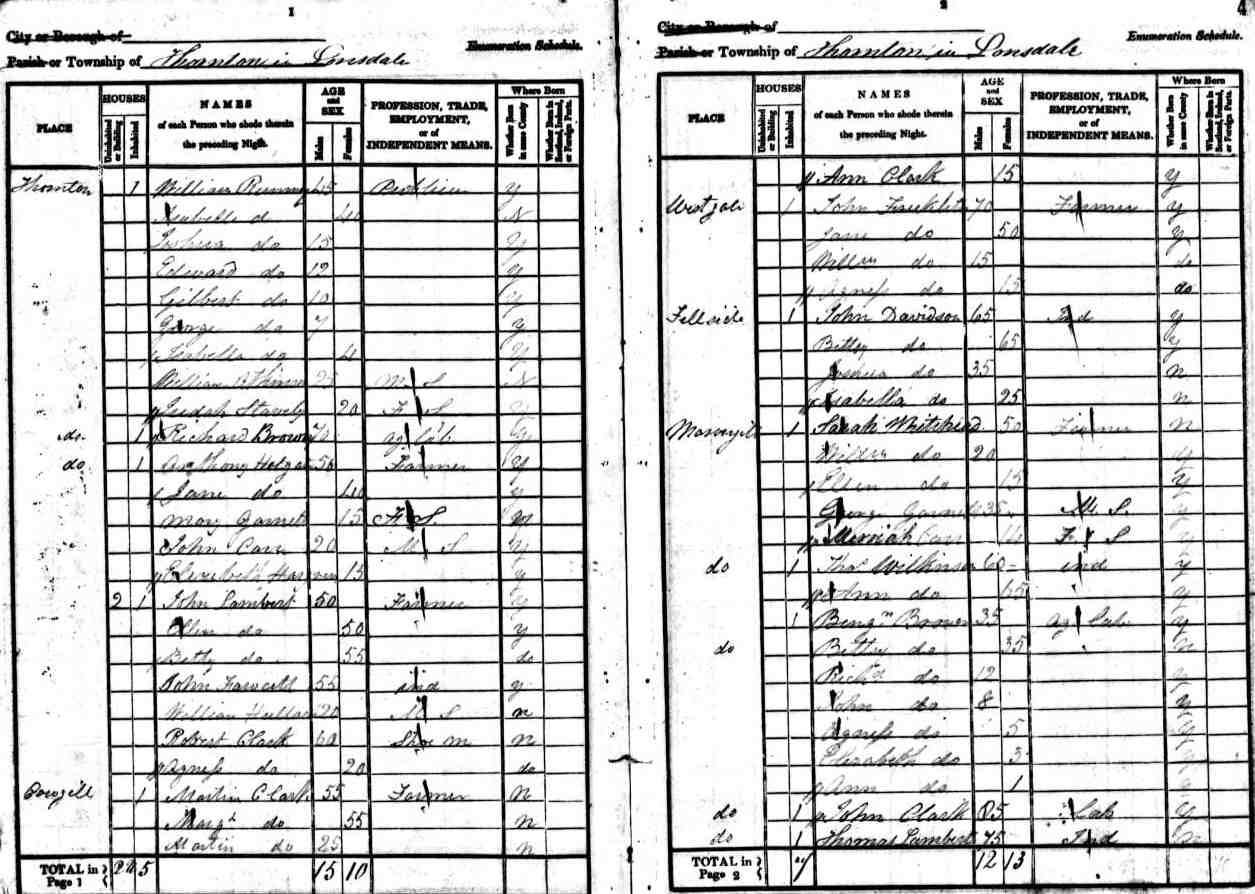 1
City or Borough of
Parish or Township of Thornton in Lonsdale
Enumeration Schedule.
PLACE HOUSES NAMES of each Person who abode therein the preceding Night. AGE and SEX PROFESSION, TRADE, EMPLOYMENT, or of INDEPENDENT MEANS. Where Born
Uninhabited or Building Inhabited Males Females Whether Born in same County Whether Born in Scotland, Ireland, or Foreign Parts.
Thornton 1 William 45 y
Isabella do 40 N
Joshua do 15 y
Edward do 12 y
Gilbert do 10 y
George do 7 y
Isabella do 4 y
William 25 M S N
Judah Stavely 20 F S y
do 1 Richard Brown 70 ag lab y
do 1 Anthony 50 Farmer y
Jane do 40 y
Mary Garnett 15 F S
John Carr 20 M S y
Elizabeth 15 y
2 1 John Lambert 50 Farmer y
Ellen do 50 y
Betty do 55 do
John Fawcett 55 ind y
William 20 M S n
Robert Clark 60 Shoe m n
Agness do 20 do
Cowgill 1 Martin Clark 55 Farmer n
Margt do 55 n
Martin do 25 n
TOTAL in Page 1 2 5 15 10
2
4
City or Borough of
Parish or Township of Thornton in Lonsdale
Enumeration Schedule.
PLACE HOUSES NAMES of each Person who abode therein the preceding Night. AGE and SEX PROFESSION, TRADE, EMPLOYMENT, or of INDEPENDENT MEANS. Where Born
Uninhabited or Building Inhabited Males Females Whether Born in same County Whether Born in Scotland, Ireland, or Foreign Parts.
Ann Clark 15 y
Westgate 1 John 70 Farmer y
Jane do 50 y
Willm do 15 do
Agness do 15 do
Fellside 1 John Davidson 65 Ind y
Bettey do 65 y
Joshua do 35 n
Isabella do 25 n
1 Sarah Whitehead 50 Farmer n
William do 20 y
Ellen do 15 y
George Garnett 35 M. S. y
Carr 14 F S y
do 1 Thos Wilkinson 60 ind y
Ann do 65 y
1 Benjn 35 ag Lab y
do Bettey do 35 n
Richd do 12 y
John do 8 y
Agness do 5 y
Elizabeth do 3 y
Ann do 1 y
do 1 John Clark 85 Lab y
do 1 Thomas Lambert 75 Ind n
TOTAL in Page 2 7 12 13